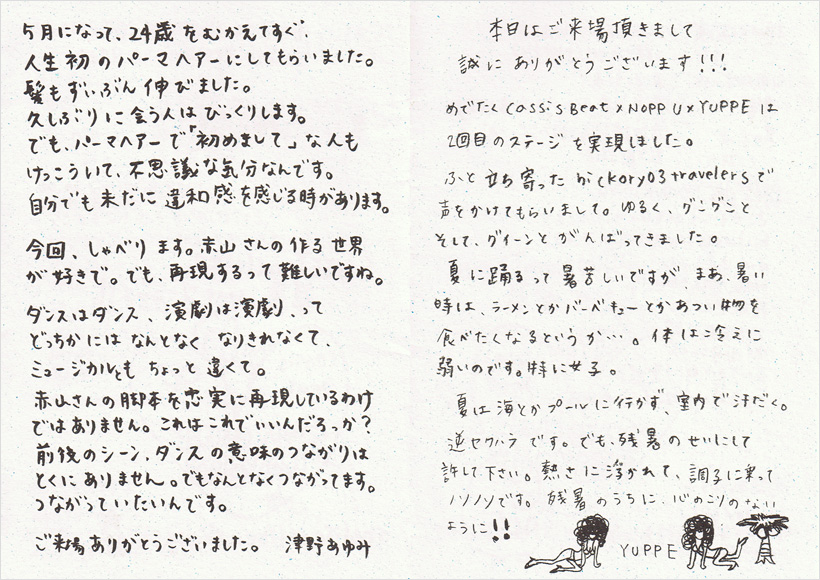 5月になって、24歳をむかえてすぐ、
人生初のパーマヘアーにしてもらいました。
髪もずいぶん伸びました。
久しぶりに会う人はびっくりします。
でも、パーマヘアーで「初めまして」な人も
けっこういて、不思議な気分なんです。
自分でも未だに違和感を感じる時があります。
今回、しゃべります。赤山さんの作る世界
が好きで。でも、再現するって難しいですね。
ダンスはダンス、演劇は演劇、って
どっちかにはなんとなくなりきれなくて、
ミュージカルともちょっと違くて。
赤山さんの脚本を忠実に再現しているわけ
ではありません。これはこれでいいんだろっか?
前後のシーン、ダンスの意味のつながりは
とくにありません。でもなんとなくつながってます。
つながっていたいんです。
ご来場ありがとうございました。 津野あゆみ
本日はご来場頂きまして
誠にありがとうございます!!!
めでたく cassis Beat×NOPP U×YUPPE は
2回目のステージを実現しました。
ふと立ち寄った が ckory03travelersで
声をかけてもらいまして。ゆるく、グングンと
そして、グイーンとがんばってきました。
夏に踊るって暑苦しいですが、まあ、暑い
時は、ラーメンとかバーベキューとかあつい物を
食べたくなるというか…。体は冷えに
弱いのです。特に女子。
夏は海とかプールに行かず、室内で汗だく。
逆セクハラです。でも、残暑のせいにして
許して下さい。熱さに浮かれて、調子に乗って
ノソノソです。残暑のうちに、心のこりのない
ように!!
YUPPE